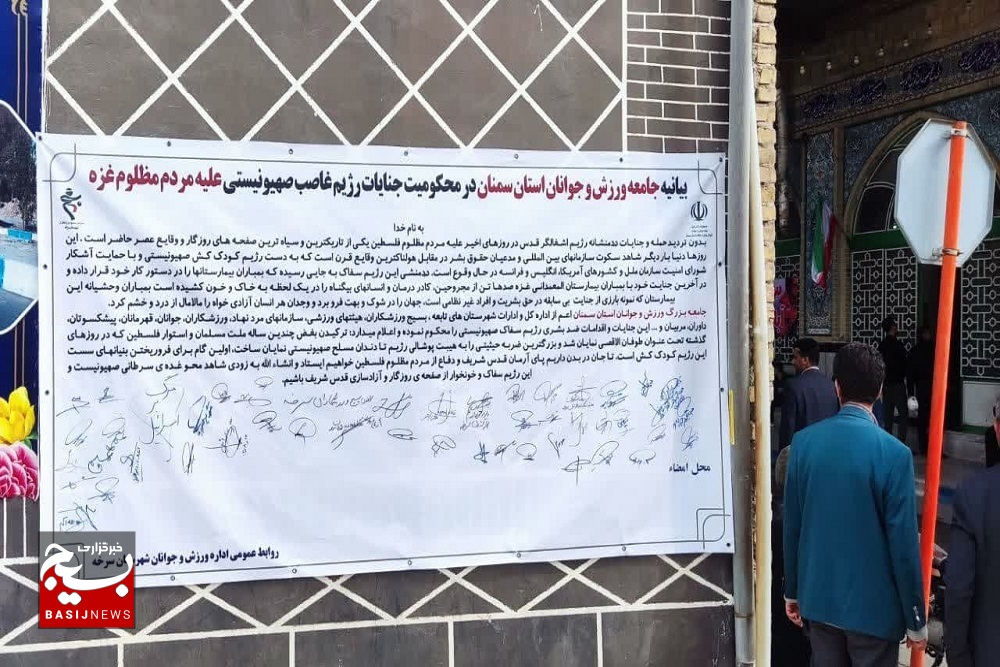 بیانیه جامعه ورزش و جوانان استان سمنان در محکومیت جنایات رژیم غاصب صهیونیستی علیه مردم مظلوم غزه
به نام خدا
بدون تردید حمله و جنایات ددمنشانه رژیم اشغالگر قدس در روزهای اخیر علیه مردم مظلوم فلسطین یکی از تاریکترین و سیاه ترین صفحه های روزگار و وقایع عصر حاضر است . این
روزها دنیا بار دیگر شاهد سکوت سازمانهای بین المللی و مدعیان حقوق بشر در مقابل هولناکترین وقایع قرن است که به دست رژیم کودک کش صهیونیستی و با حمایت آشکار
شورای امنیت سازمان ملل و کشورهای آمریکا، انگلیس و فرانسه در حال وقوع است. ددمنشی این رژیم سفاک به جایی رسیده که بمباران بیمارستانها را در دستور کار خود قرار داده و
در آخرین جنایت خود با بمباران بیمارستان المعمدانی غزه صدها تن از مجروحین، کادر درمان و انسانهای بیگناه را در یک لحظه به خاک و خون کشیده است بمباران وحشیانه این
بیمارستان که نمونه بارزی از جنایت بی سابقه در حق بشریت و افراد غیر نظامی است، جهان را در شوک و بهت فرو برد و وجدان هر انسان آزادی خواه را مالامال از درد و خشم کرد.
جامعه بزرگ ورزش و جوانان استان سمنان اعم از اداره کل و ادارات شهرستان های تابعه ، بسیج ورزشکاران، هیئتهای ورزشی، سازمانهای مردم نهاد، ورزشکاران، جوانان، قهرمانان، پیشکسوتان،
داوران، مربیان و ... این جنایات و اقدامات ضد بشری رژیم سفاک صهیونیستی را محکوم نموده و اعلام میدارد: ترکیدن بغض چندین ساله ملت مسلمان و استوار فلسطین که در روزهای
گذشته تحت عنوان طوفان الاقصی نمایان شد و بزرگترین ضربه حیثیتی را به هیبت پوشالی رژیم تا دندان مسلح صهیونیستی نمایان ساخت، اولین گام برای فروریختن بنیانهای سست
این رژیم کودک کش است. تا جان در بدن داریم پای آرمان قدس شریف و دفاع از مردم مظلوم فلسطین خواهیم ایستاد و انشاء الله به زودی شاهد محو غده ی سرطانی صهیونیست و
این رژیم سفاک و خونخوار از صفحه ی روزگار و آزادسازی قدس شریف باشیم.
محل امضاء
روابط عمومی اداره ورزش و جوانان شهرستان سرخه
خبرگزاری
بسیج
BASIJNEWS